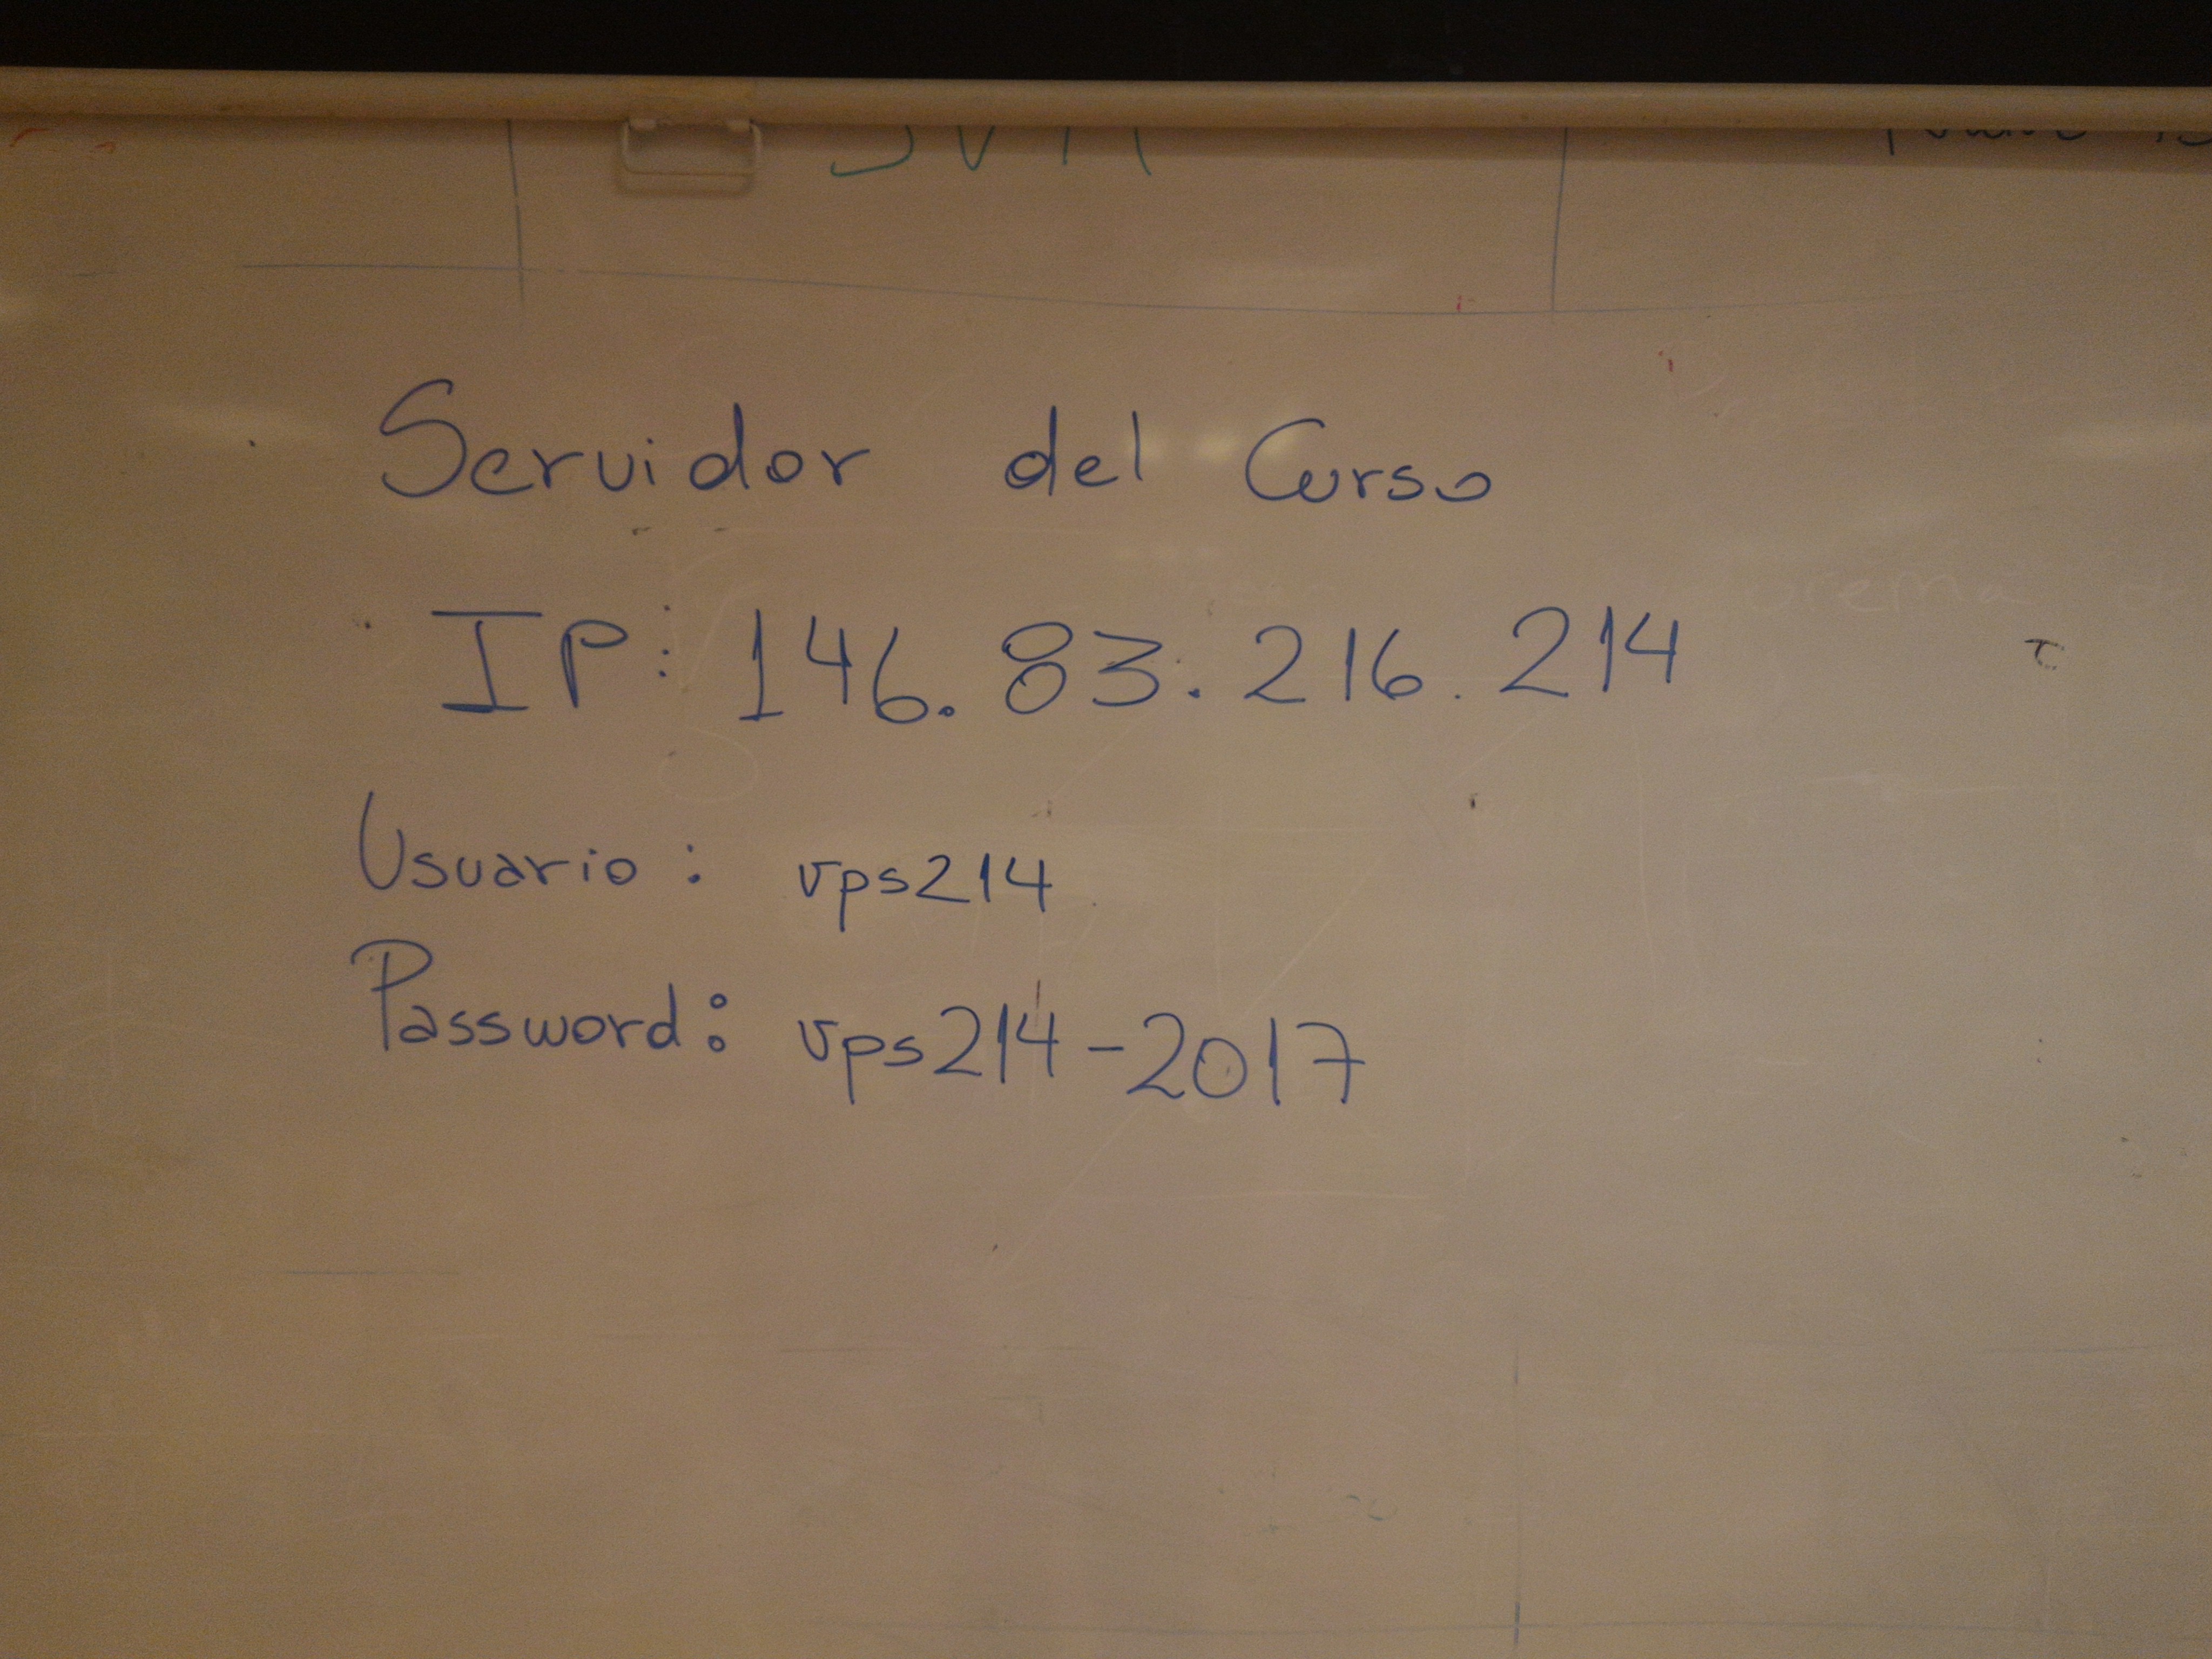 Servidor del Curso
IP: 146.83.216.214
Usuario: vps214
Password: vps214-2017